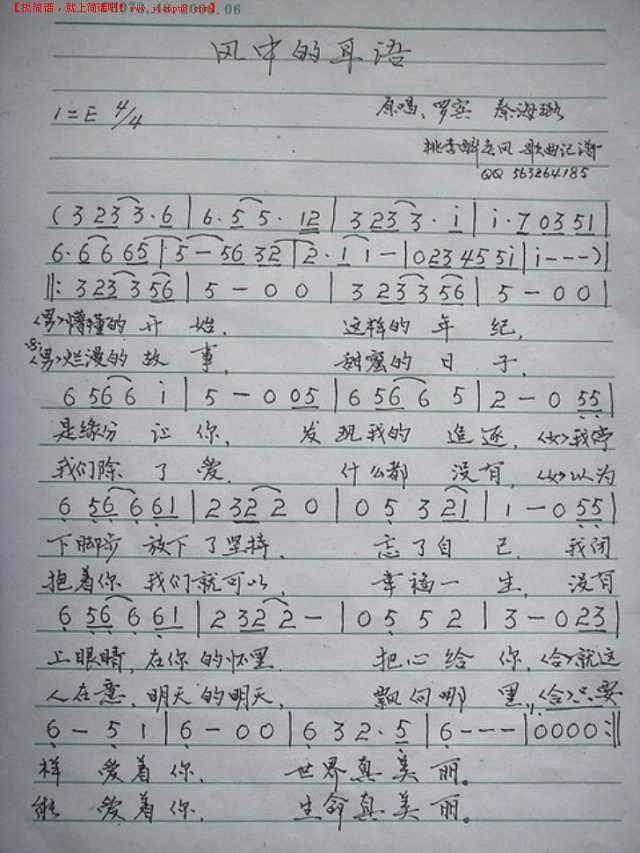 【找简谱，就上简谱吧！
风中的耳语
1=E 4/4
原唱、罗宾 蔡海璐
桃李醉春风 歌曲记谱
QQ 563264185
(3 23 3·6 | 6·5 5·12 | 3 23 3·i | i·7 0351 |
6·6 6 65 | 5 - 56 32 | 2·1 1 - | 023 455i | i - - - ) |
‖: 3 23 3 56 | 5 - 0 0 | 3 23 3 56 | 5 - 0 0 |
<男>懵懂的 开 始， 这样的 年 纪，
<男>烂漫的 故 事， 甜蜜的 日 子，
6 56 6 i | 5 - 0 05 | 6 56 6 5 | 2 - 0 55 |
是缘分 让 你， 发 现我的 追 逐，<女>我停
我们除 了 爱， 什么都 没 有，<女>以为
6 56 6 61 | 2 32 2 0 | 0 5 3 21 | 1 - 0 55 |
下脚步 放下了坚持， 忘了自 己， 我闭
抱着你 我们就可以， 幸福一 生， 没有
6 56 6 61 | 2 32 2 - | 0 5 5 2 | 3 - 0 23 |
上眼睛，在你的怀里 把心给 你，<合>就这
人在意，明天的明天， 飘向哪 里，<合>只要
6 - 5 1 | 6 - 0 0 | 6 3 2·5 | 6 - - - | 0000 :‖
样 爱着你， 世界真美丽。
能 爱着你， 生命真美丽。